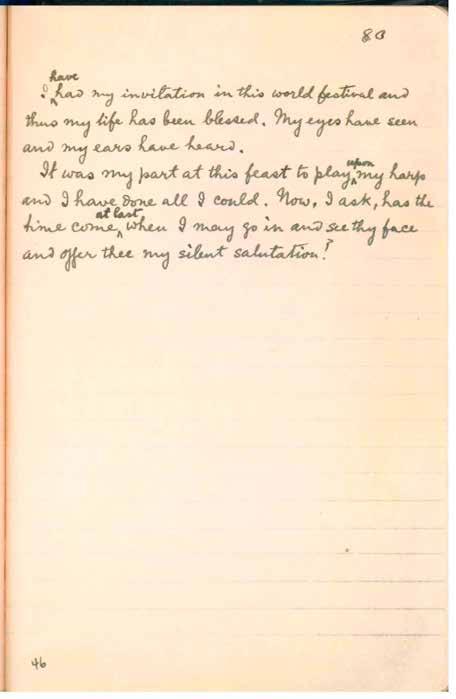 80
I have had my invitation in this world festival and
thus my life has been blessed. My eyes have seen
and my ears have heard.
It was my part at this feast to play upon my harp
and I have done all I could. Now, I ask, has the
time come at last, when I may go in and see thy face
and offer thee my silent salutation?
46